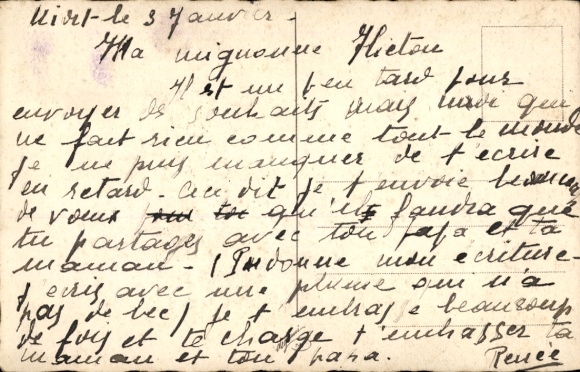 Niort le 3 Janvier -
Ma mignonne
Il est un peu tard pour
envoyer des souhaits mais moi qui
ne fait rien comme tout le monde
je ne puis manquer de t ecrire
en retard - Ceci dit je t envoie beaucoup
de vœux qu'il faudra que
tu partages avec ton papa et ta
maman - (Pardonne mon ecriture -
j ecris avec une plume qui n'a
pas de bec) je t embrasse beaucoup
de fois et te charge d'embrasser ta
maman et ton papa.
Renée